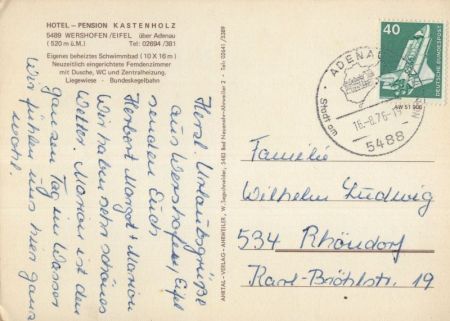 HOTEL – PENSION KASTENHOLZ
5489 WERSHOFEN/EIFEL über Adenau
(520 m ü.M.) Tel: 02694 /381
Eigenes beheiztes Schwimmbad (10 X 16 m)
Neuzeitlich eingerichtete Fremdenzimmer
mit Dusche, WC und Zentralheizung.
Liegewiese - Bundeskegelbahn
Herzl. Urlaubsgrüße
aus Wershofen/Eifel
senden Euch
Herbert Margot + Marion
Wir haben sehr schönes
Wetter. Marion ist den
ganzen Tag im Wasser
Wir fühlen uns hier ganz
wohl.
AHRTAL-VERLAG - AHRWEILER, W. 5483 Bad Neuenahr-Ahrweiler 2 - Tel.: 02641 /3389
40
DEUTSCHE BUNDESPOST
ADENAU
Stadt am
16.-8.76-17
5488
Familie
Wilhelm Ludwig
534 Rhöndorf
Karl-Bröhlstr. 19